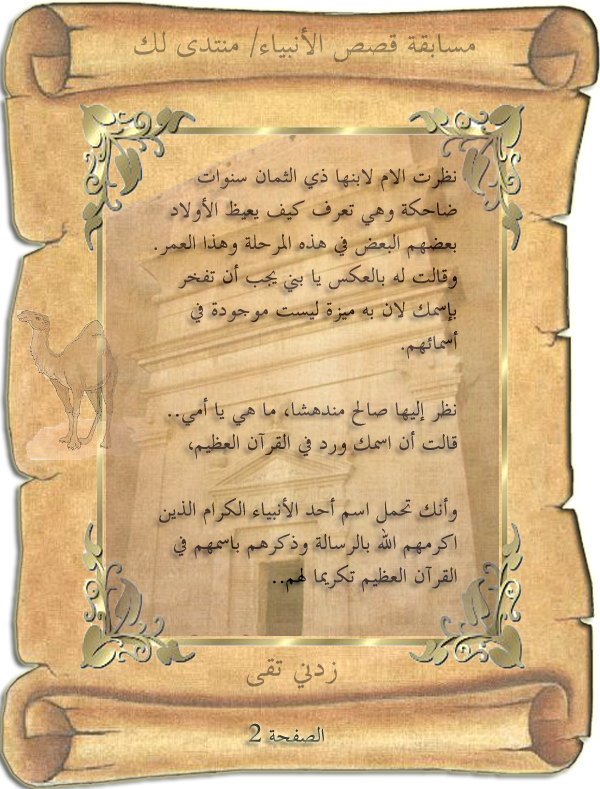 مسابقة قصص الأنبياء/ منتدى لك
نظرت الام لابنها ذي الثمان سنوات
ضاحكة وهي تعرف كيف يعيظ الأولاد
بعضهم البعض في هذه المرحلة وهذا العمر.
وقالت له بالعكس يا بني يجب أن تفخر
بإسمك لان به ميزة ليست موجودة في
أسمائهم.
نظر إليها صالح مندهشا، ما هي يا أمي..
قالت أن اسمك ورد في القرآن العظيم،
وأنك تحمل اسم أحد الأنبياء الكرام الذين
اكرمهم الله بالرسالة وذكرهم باسمهم في
القرآن العظيم تكريما لهم..
زدني تقى
الصفحة 2